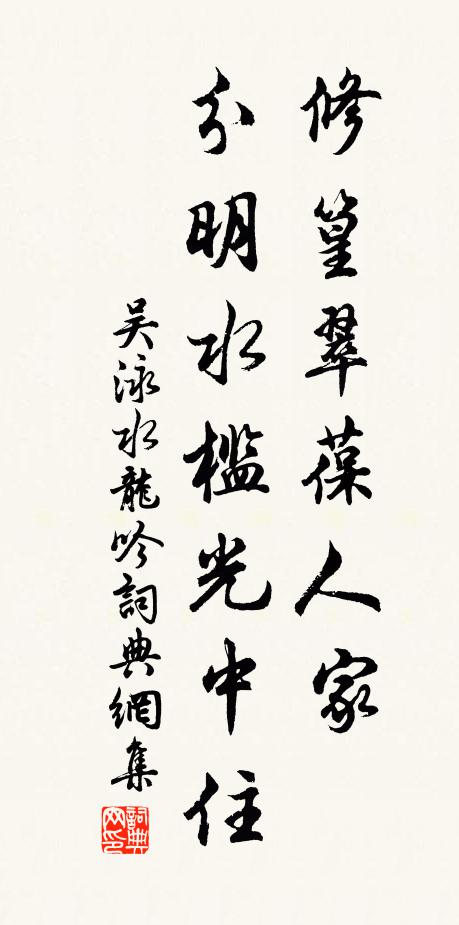 修篁翠葆人家
分明水檻光中住
吴泳水龍吟詞典網集
詞典网印